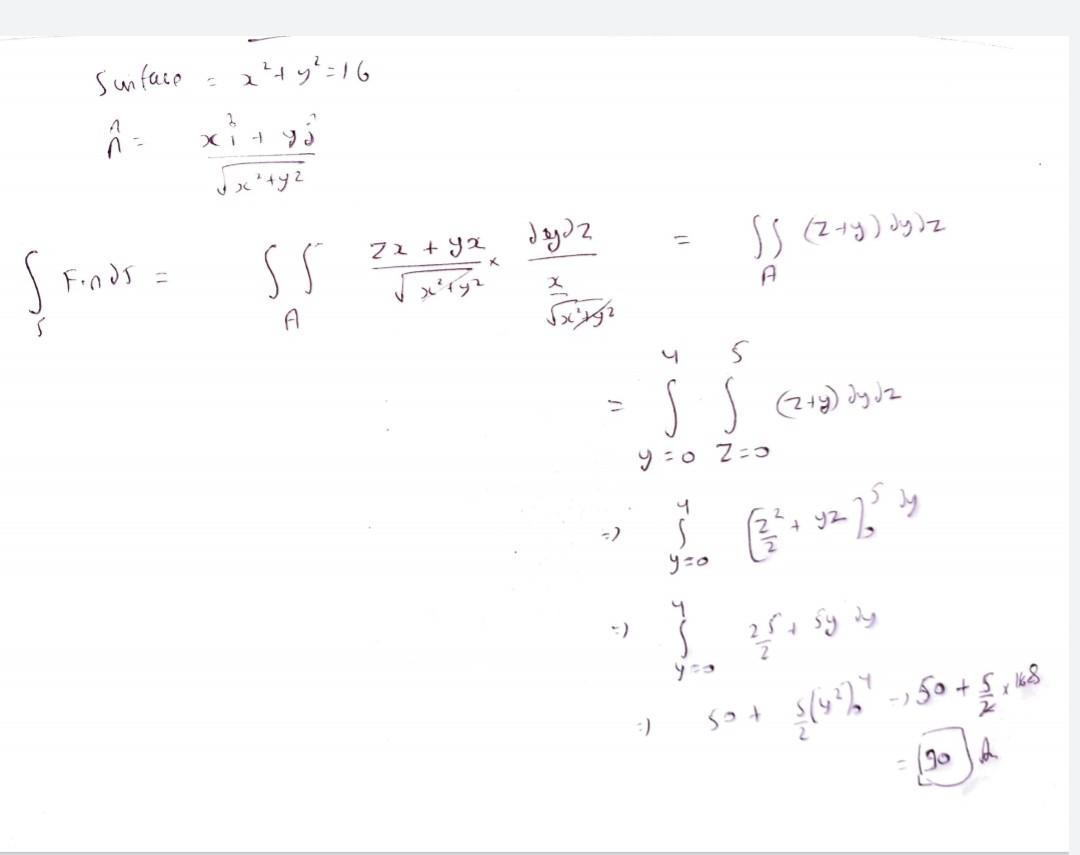 Surface = x²+y²=16
n̂ = (xî + yĵ)/√(x²+y²)
∫_S F.n ds = ∫∫_A (zx + yx)/√(x²+y²) × dydz/(x/√(x²+y²)) = ∫∫_A (z+y) dydz
= ∫_{y=0}^{4} ∫_{z=0}^{5} (z+y) dydz
=) ∫_{y=0}^{4} [z²/2 + yz]_0^5 dy
=) ∫_{y=0}^{4} 25/2 + 5y dy
=) 50 + 5/2 (y²)_0^4 → 50 + 5/2 × 16 8
= 90